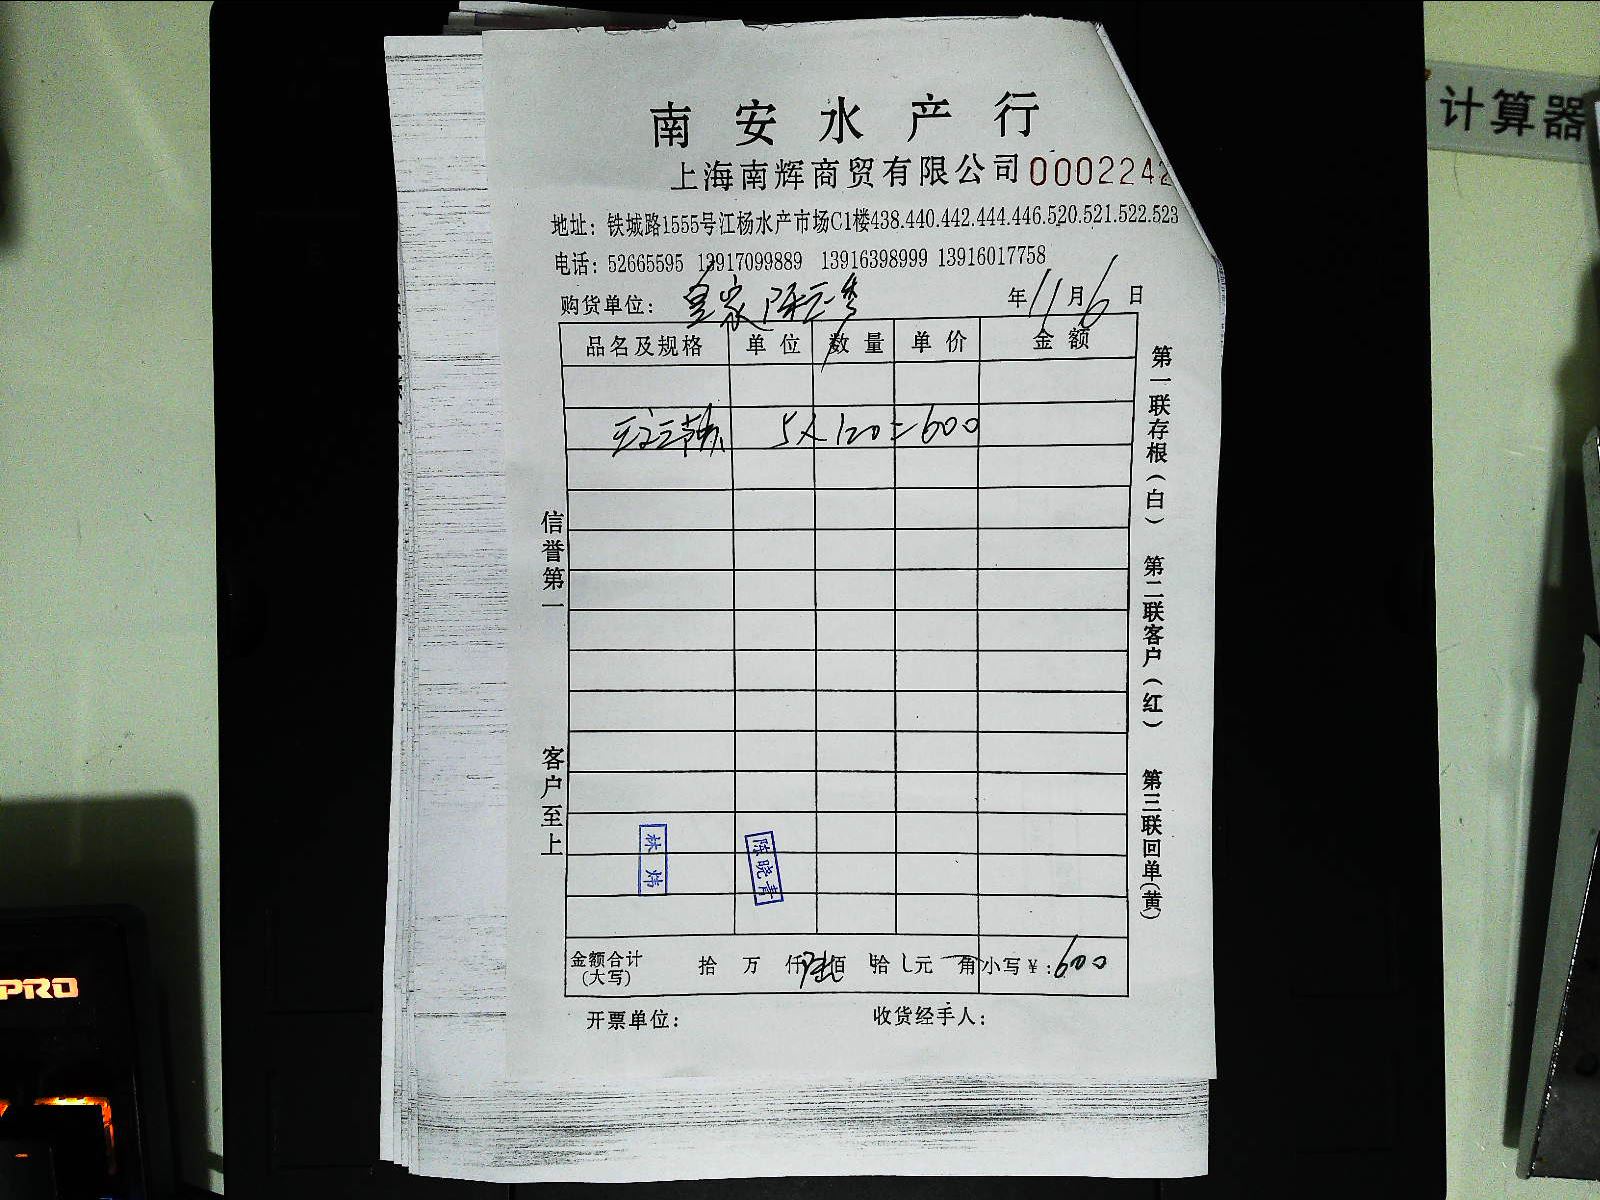 南安水产行
上海南辉商贸有限公司 0002242
地址：铁城路1555号江杨水产市场C1楼438.440.442.444.446.520.521.522.523
电话：52665595 13917099889 13916398999 13916017758
购货单位：皇家 年11月6日
品名及规格 单位 数量 单价 金额
5×120=600
金额合计（大写） 拾 万 仟陆佰 拾 元 角 小写￥：600
开票单位： 收货经手人：
信誉第一
客户至上
第一联存根（白）
第二联客户（红）
第三联回单（黄）
林炜
陈晓青
计算器
PRO